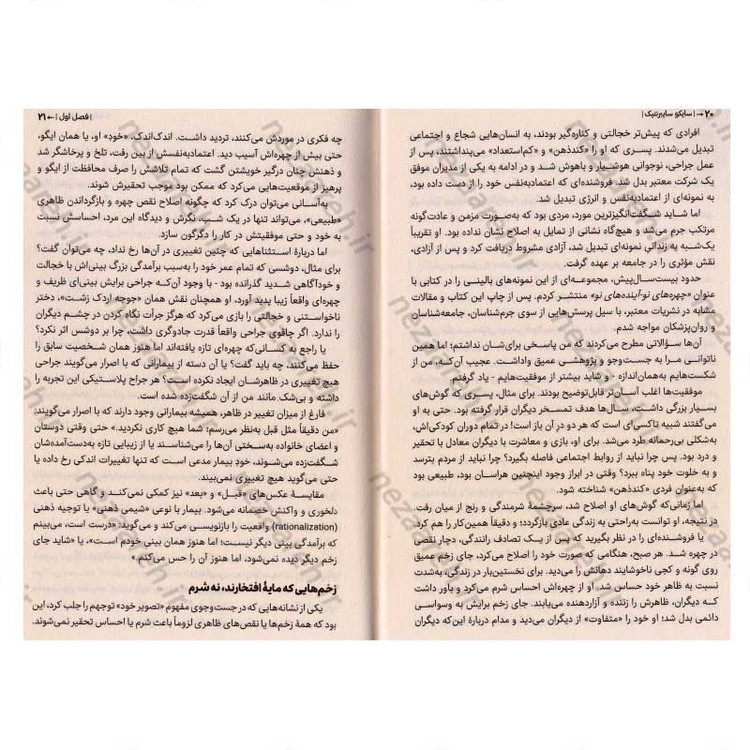 ۲۰ → | سایکو سایبرنتیک |
افرادی که پیش‌تر خجالتی و کناره‌گیر بودند، به انسان‌هایی شجاع و اجتماعی
تبدیل می‌شدند. پسری که او را «کندذهن» و «کم‌استعداد» می‌پنداشتند، پس از
عمل جراحی، نوجوانی هوشیار و باهوش شد و در ادامه به یکی از مدیران موفق
یک شرکت معتبر بدل شد. فروشنده‌ای که اعتمادبه‌نفس خود را از دست داده بود،
به نمونه‌ای از اعتمادبه‌نفس و انرژی تبدیل شد.
اما شاید شگفت‌انگیزترین مورد، مردی بود که به‌صورت مزمن و عادت‌گونه
مرتکب جرم می‌شد و هیچ‌گاه نشانی از تمایل به اصلاح نشان نداده بود. او تقریباً
یک‌شبه به زندانی نمونه‌ای تبدیل شد، آزادی مشروط دریافت کرد و پس از آزادی،
نقش مؤثری را در جامعه بر عهده گرفت.
حدود بیست‌سال‌پیش، مجموعه‌ای از این نمونه‌های بالینی را در کتابی با
عنوان «چهره‌های نو-آینده‌های نو» منتشر کردم. پس از چاپ این کتاب و مقالات
مشابه در نشریات معتبر، با سیل پرسش‌هایی از سوی جرم‌شناسان، جامعه‌شناسان
و روان‌پزشکان مواجه شدم.
آن‌ها سؤالاتی مطرح می‌کردند که من پاسخی برای‌شان نداشتم؛ اما همین
ناتوانی مرا به جست‌وجو و پژوهشی عمیق واداشت. عجیب آن‌که، من از
شکست‌هایم به‌همان‌اندازه - و شاید بیشتر از موفقیت‌هایم - یاد گرفتم.
موفقیت‌ها اغلب آسان‌تر قابل‌توضیح بودند. برای مثال، پسری که گوش‌های
بسیار بزرگی داشت، سال‌ها هدف تمسخر دیگران قرار گرفته بود. حتی به او
می‌گفتند شبیه تاکسی‌ای است که هر دو در آن باز است! در تمام دوران کودکی‌اش،
به‌شکلی بی‌رحمانه طرد می‌شد. برای او، بازی و معاشرت با دیگران معادل با تحقیر
و درد بود. پس چرا نباید از روابط اجتماعی فاصله بگیرد؟ چرا نباید از مردم بترسد
و به خلوت خود پناه ببرد؟ وقتی در ابراز وجود اینچنین هراسان بود، طبیعی بود
که به‌عنوان فردی «کندذهن» شناخته شود.
اما زمانی‌که گوش‌های او اصلاح شد، سرچشمهٔ شرمندگی و رنج از میان رفت.
در نتیجه، او توانست به‌راحتی به زندگی عادی بازگردد؛ و دقیقاً همین‌کار را هم کرد.
یا فروشنده‌ای را در نظر بگیرید که پس از یک تصادف رانندگی، دچار نقصی
در چهره شد. هر صبح، هنگامی که صورت خود را اصلاح می‌کرد، جای زخم عمیق
روی گونه و کجی ناخوشایند دهانش را می‌دید. برای نخستین‌بار در زندگی، به‌شدت
نسبت به ظاهر خود حساس شد. او از چهره‌اش احساس شرم می‌کرد و باور داشت
که دیگران، ظاهرش را زننده و آزاردهنده می‌یابند. جای زخم برایش به وسواسی
دائمی بدل شد؛ او خود را «متفاوت» از دیگران می‌دید و مدام دربارهٔ این‌که دیگران
| فصل اول | ← ۲۱
چه فکری در موردش می‌کنند، تردید داشت. اندک‌اندک، «خودِ» او، یا همان ایگو،
حتی بیش از چهره‌اش آسیب دید. اعتمادبه‌نفسش از بین رفت، تلخ و پرخاشگر شد
و ذهنش چنان درگیر خویشتن گشت که تمام تلاشش را صرف محافظت از ایگو و
پرهیز از موقعیت‌هایی می‌کرد که ممکن بود موجب تحقیرش شوند.
به‌آسانی می‌توان درک کرد که چگونه اصلاح نقص چهره و بازگرداندن ظاهری
«طبیعی»، می‌تواند تنها در یک شب، نگرش و دیدگاه این مرد، احساسش نسبت
به خود و حتی موفقیتش در کار را دگرگون سازد.
اما دربارهٔ استثناهایی که چنین تغییری در آن‌ها رخ نداد، چه می‌توان گفت؟
برای مثال، دوشسی که تمام عمر خود را به‌سبب برآمدگی بزرگ بینی‌اش با خجالت
و خودآگاهی شدید گذرانده بود - با وجود آن‌که جراحی برایش بینی‌ای ظریف و
چهره‌ای واقعاً زیبا پدید آورد، او همچنان نقش همان «جوجه اردک زشت»، دختر
ناخواستنی و خجالتی را بازی می‌کرد که هرگز جرأت نگاه کردن در چشم دیگران
را ندارد. اگر چاقوی جراحی واقعاً قدرت جادوگری داشت، چرا بر دوشس اثر نکرد؟
یا راجع به کسانی‌که چهره‌ای تازه یافته‌اند اما هنوز همان شخصیت سابق را
حفظ می‌کنند، چه باید گفت؟ یا آن دسته از بیمارانی که با اصرار می‌گویند جراحی
هیچ تغییری در ظاهرشان ایجاد نکرده است؟ هر جراح پلاستیکی این تجربه را
داشته و بی‌شک مانند من از آن شگفت‌زده شده است.
فارغ از میزان تغییر در ظاهر، همیشه بیمارانی وجود دارند که با اصرار می‌گویند:
«من دقیقاً مثل قبل به‌نظر می‌رسم؛ شما هیچ کاری نکردید.» حتی وقتی دوستان
و اعضای خانواده به‌سختی آن‌ها را می‌شناسند و از زیبایی تازه به‌دست‌آمده‌شان
شگفت‌زده می‌شوند، خود بیمار مدعی است که تنها تغییرات اندکی رخ داده یا
حتی می‌گوید هیچ تغییری نمی‌بیند.
مقایسهٔ عکس‌های «قبل» و «بعد» نیز کمکی نمی‌کند و گاهی حتی باعث
دلخوری و واکنش خصمانه می‌شود. بیمار با نوعی «شیمی ذهنی» یا توجیه ذهنی
(rationalization) واقعیت را بازنویسی می‌کند و می‌گوید: «درست است، می‌بینم
که برآمدگی بینی دیگر نیست؛ اما هنوز همان بینی خودم است»، یا «شاید جای
زخم دیگر دیده نمی‌شود، اما هنوز آن را حس می‌کنم.»
زخم‌هایی که مایهٔ افتخارند، نه شرم
یکی از نشانه‌هایی که در جست‌وجوی مفهوم «تصویر خود» توجهم را جلب کرد، این
بود که همهٔ زخم‌ها یا نقص‌های ظاهری لزوماً باعث شرم یا احساس تحقیر نمی‌شوند.
nezaareh.ir